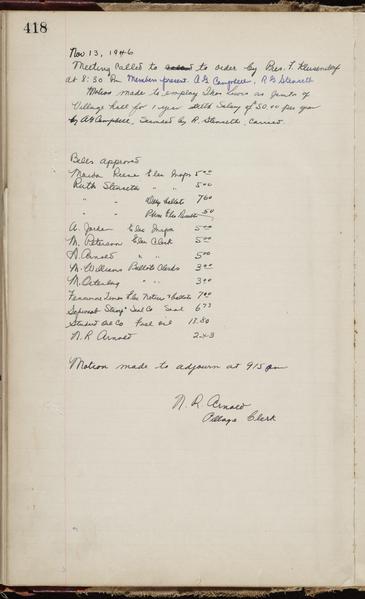 418
Nov 13, 1946
Meeting called to to order by Pres. F. Kleusendorf
at 8:30 Pm Members present. A G Campbell, R G Stenseth
Motion made to employ as Janitor of
Village Hall for 1 year with Salary of 50.00 per year
by A G Campbell, Seconded by R. Stenseth, Carried.
Bills approved
Reese Elec Insps 5.00
Ruth Stenseth " " 5.00
" " Ballots 7.60
" " Elec 50
A. Jordan Elec Insps 5.00
M. Peterson Elec Clerk 5.00
N. Arnold " " 5.00
M. Williams Ballots Clerks 3.00
M. " " 3.00
Times Elec Notices & Ballots 7.00
Stamp & Seal Co Seal 6.73
Standard Oil Co Fuel oil 17.80
N. R Arnold 2.43
Motion made to adjourn at 915 pm
N. R. Arnold
Village Clerk